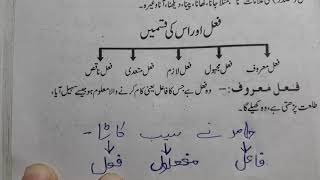 (مصدر) کی علامات "نا" ہے مثلاً جانا، کھانا، پینا، دیکھنا، آنا وغیرہ۔
فعل اور اس کی قسمیں
فعل معروف فعل مجہول فعل لازم فعل متعدی فعل ناقص
فعل معروف:- وہ فعل ہے جس کا فاعل یعنی کام کرنے والا معلوم ہو جیسے سہیل آیا،
طلعت پڑھتی ہے، وہ کھیلے گا۔
نے سیب کاٹا-
فاعل مفعول فعل